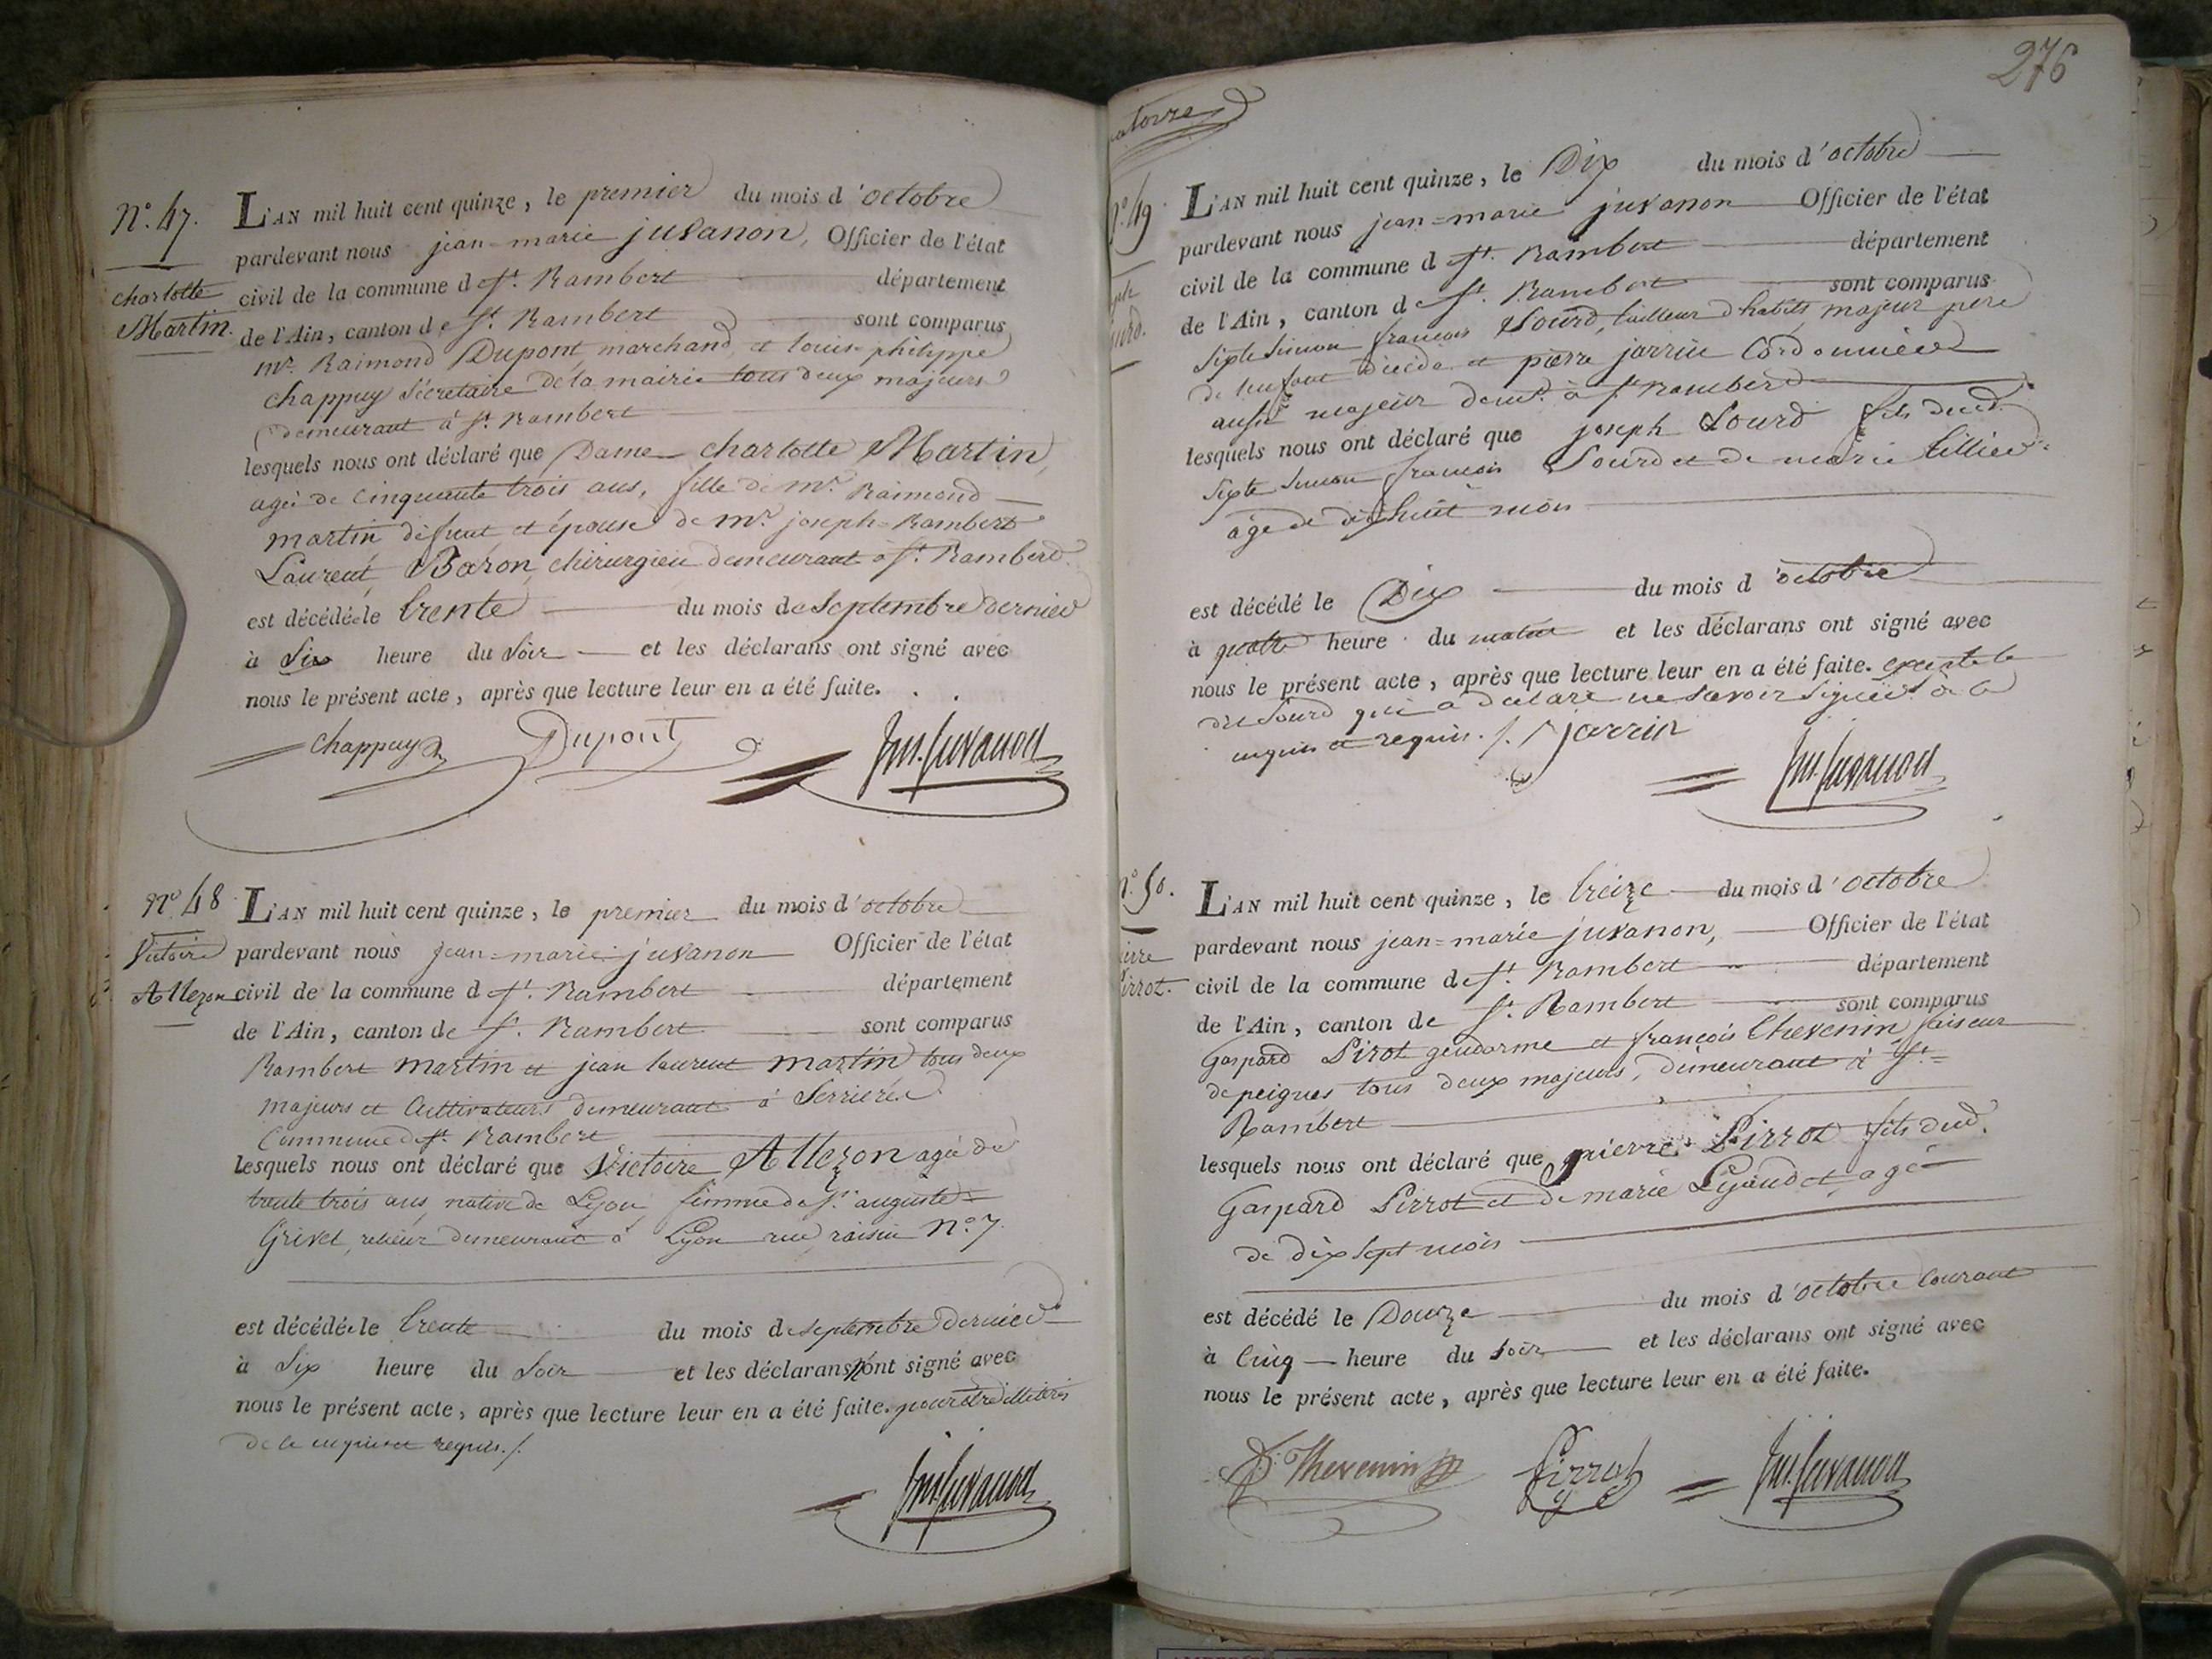 N.º 47.
Charlotte
Martin.
L'AN mil huit cent quinze, le premier du mois d'octobre
pardevant nous jean-marie juvanon, Officier de l'état
civil de la commune de St. Rambert département
de l'Ain, canton de St. Rambert sont comparus
mr. Raimond Dupont marchand, et louis-philippe
chappuy Sécretaire de la mairie tous deux majeurs
demeurant à St. Rambert
lesquels nous ont déclaré que Dame charlotte Martin,
agée de Cinquante trois ans, fille de mr. Raimond
martin défunt et épouse de mr. joseph-Rambert
Laurent Baron, chirurgien demeurant à St. Rambert
est décédée le trente du mois de Septembre dernier
à Six heure du Soir et les déclarans ont signé avec
nous le présent acte, après que lecture leur en a été faite.
Chappuy Dupont Jm. Juvanon
Nº. 48
Victoire
Allezon
L'AN mil huit cent quinze, le premier du mois d'octobre
pardevant nous jean-marie juvanon Officier de l'état
civil de la commune de St. Rambert département
de l'Ain, canton de St. Rambert sont comparus
Rambert Martin et jean laurent Martin tous deux
majeurs et Cultivateurs demeurant à Serrières
Commune de St. Rambert
lesquels nous ont déclaré que Victoire Allezon agée de
trente trois ans, native de Lyon, femme de Sr. auguste
Grivel, relieur demeurant à Lyon rue raisin Nº. 7.
est décédée le trente du mois de septembre dernier
à Six heure du Soir et les déclarans n'ont signé avec
nous le présent acte, après que lecture leur en a été faite. pour être illiteris
de ce enquis et requis./.
276
Nº. 49
L'AN mil huit cent quinze, le Dix du mois d'octobre
pardevant nous jean-marie juvanon Officier de l'état
civil de la commune de St. Rambert département
de l'Ain, canton de St. Rambert sont comparus
Sixte Simon françois Sourd, tailleur d'habits, majeur père
de l'enfant décédé et pierre jarrin Cordonnier
aussi majeur demt. à St. Rambert
lesquels nous ont déclaré que joseph Sourd fils dud.
Sixte Simon françois Sourd et de marie tillier
âgé de dixhuit mois
est décédé le Dix du mois d'octobre
à quatre heure du matin et les déclarans ont signé avec
nous le présent acte, après que lecture leur en a été faite. excepté le
dit Sourd qui a déclaré ne savoir signer de ce
enquis et requis ./. Jarrin
Jm. Juvanon
Nº. 50.
L'AN mil huit cent quinze, le treize du mois d'octobre
pardevant nous jean-marie juvanon, Officier de l'état
civil de la commune de St. Rambert département
de l'Ain, canton de St. Rambert sont comparus
Gaspard Pirot gendarme et françois thevenin faiseur
de peignes tous deux majeurs, demeurant à St.
Rambert
lesquels nous ont déclaré que pierre Pirrot fils dud.
Gaspard Pirrot et de marie agé
de dix sept mois
est décédé le Douze du mois d'octobre courant
à Cinq heure du soir et les déclarans ont signé avec
nous le présent acte, après que lecture leur en a été faite.
f. Thevenin Pirrot Jm. Juvanon